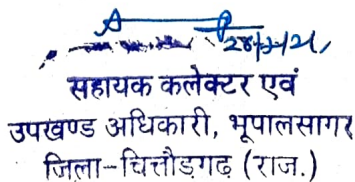 सहायक कलेक्टर एवं
उपखण्ड अधिकारी, भूपालसागर
जिला-चित्तौड़गढ़ (राज.)